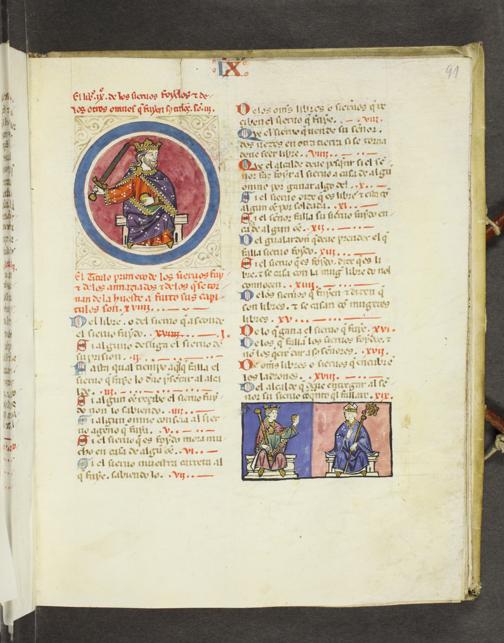 IX
91
El libro .ix. de los sieruos foydos τ de
los otros omnes q̃ fuyen
El titulo primero de los sieruos fuy
τ de los q̃ se tor
nan de la hueste a furto sus capi
tulos son. xviiii.
Del libre . o del sieruo q̃ asconde
el sieruo fuydo. .i.
Si alguno desuga el sieruo de
su prision . .ii.
Fasta qual tiempo aq̃l q̃ falla el
sieruo q̃ fuye lo due p̃sentar al alcal
de. .iii.
Si algun õe recibe el sieruo fuy
do non lo sabiendo. .iiii.
Si algun omne conseia al sier
uo ageno q̃ fuya. .v.
Si el sieruo q̃ es foydo mora mu
cho en casa de algũ õe. .vi.
Si el sieruo muestra carrera al
q̃ fuye. sabiendo lo. .vii.
De los oms̃ libres o sieruos que re
ciben el sieruo q̃ fuye. .viii.
Que el sieruo que uende su señor.
dos uezes en otra tierra si se torna
deue seer libre. .viiii.
Que el alcalde deue pesquirir si el se
nor faz foyr al sieruo a casa de algũ
omne por ganar algo del. .x.
Si el sieruo dize q̃ es libre τ esta cõ
algun õe por soldada. .xi.
Si el señor falla su sieruo fuydo en
casa de algun õe. .xii.
Del gualardon q̃ deue prender el q̃
falla sieruo foydo. .xiii.
Si el sieruo q̃ es foydo. dize q̃ es li
bre. τ se casa con la mugĩ libre do nol
connocen. .xiiii.
De los sieruos q̃ fuyen τ dizen q̃
son libres. τ se casan cõ mugieres
libres. .xv.
De lo q̃ gana el sieruo q̃ fuye. .xvi.
De los q̃ falla los sieruos foydos. τ
no los q̃ere dar a so señores. .xvii.
De oms̃ libres o sieruos q̃ encubre
los ladrones. .xviii.
Del alcalde q̃ q̃ere entregar al se
ñor su sieruo .xix.